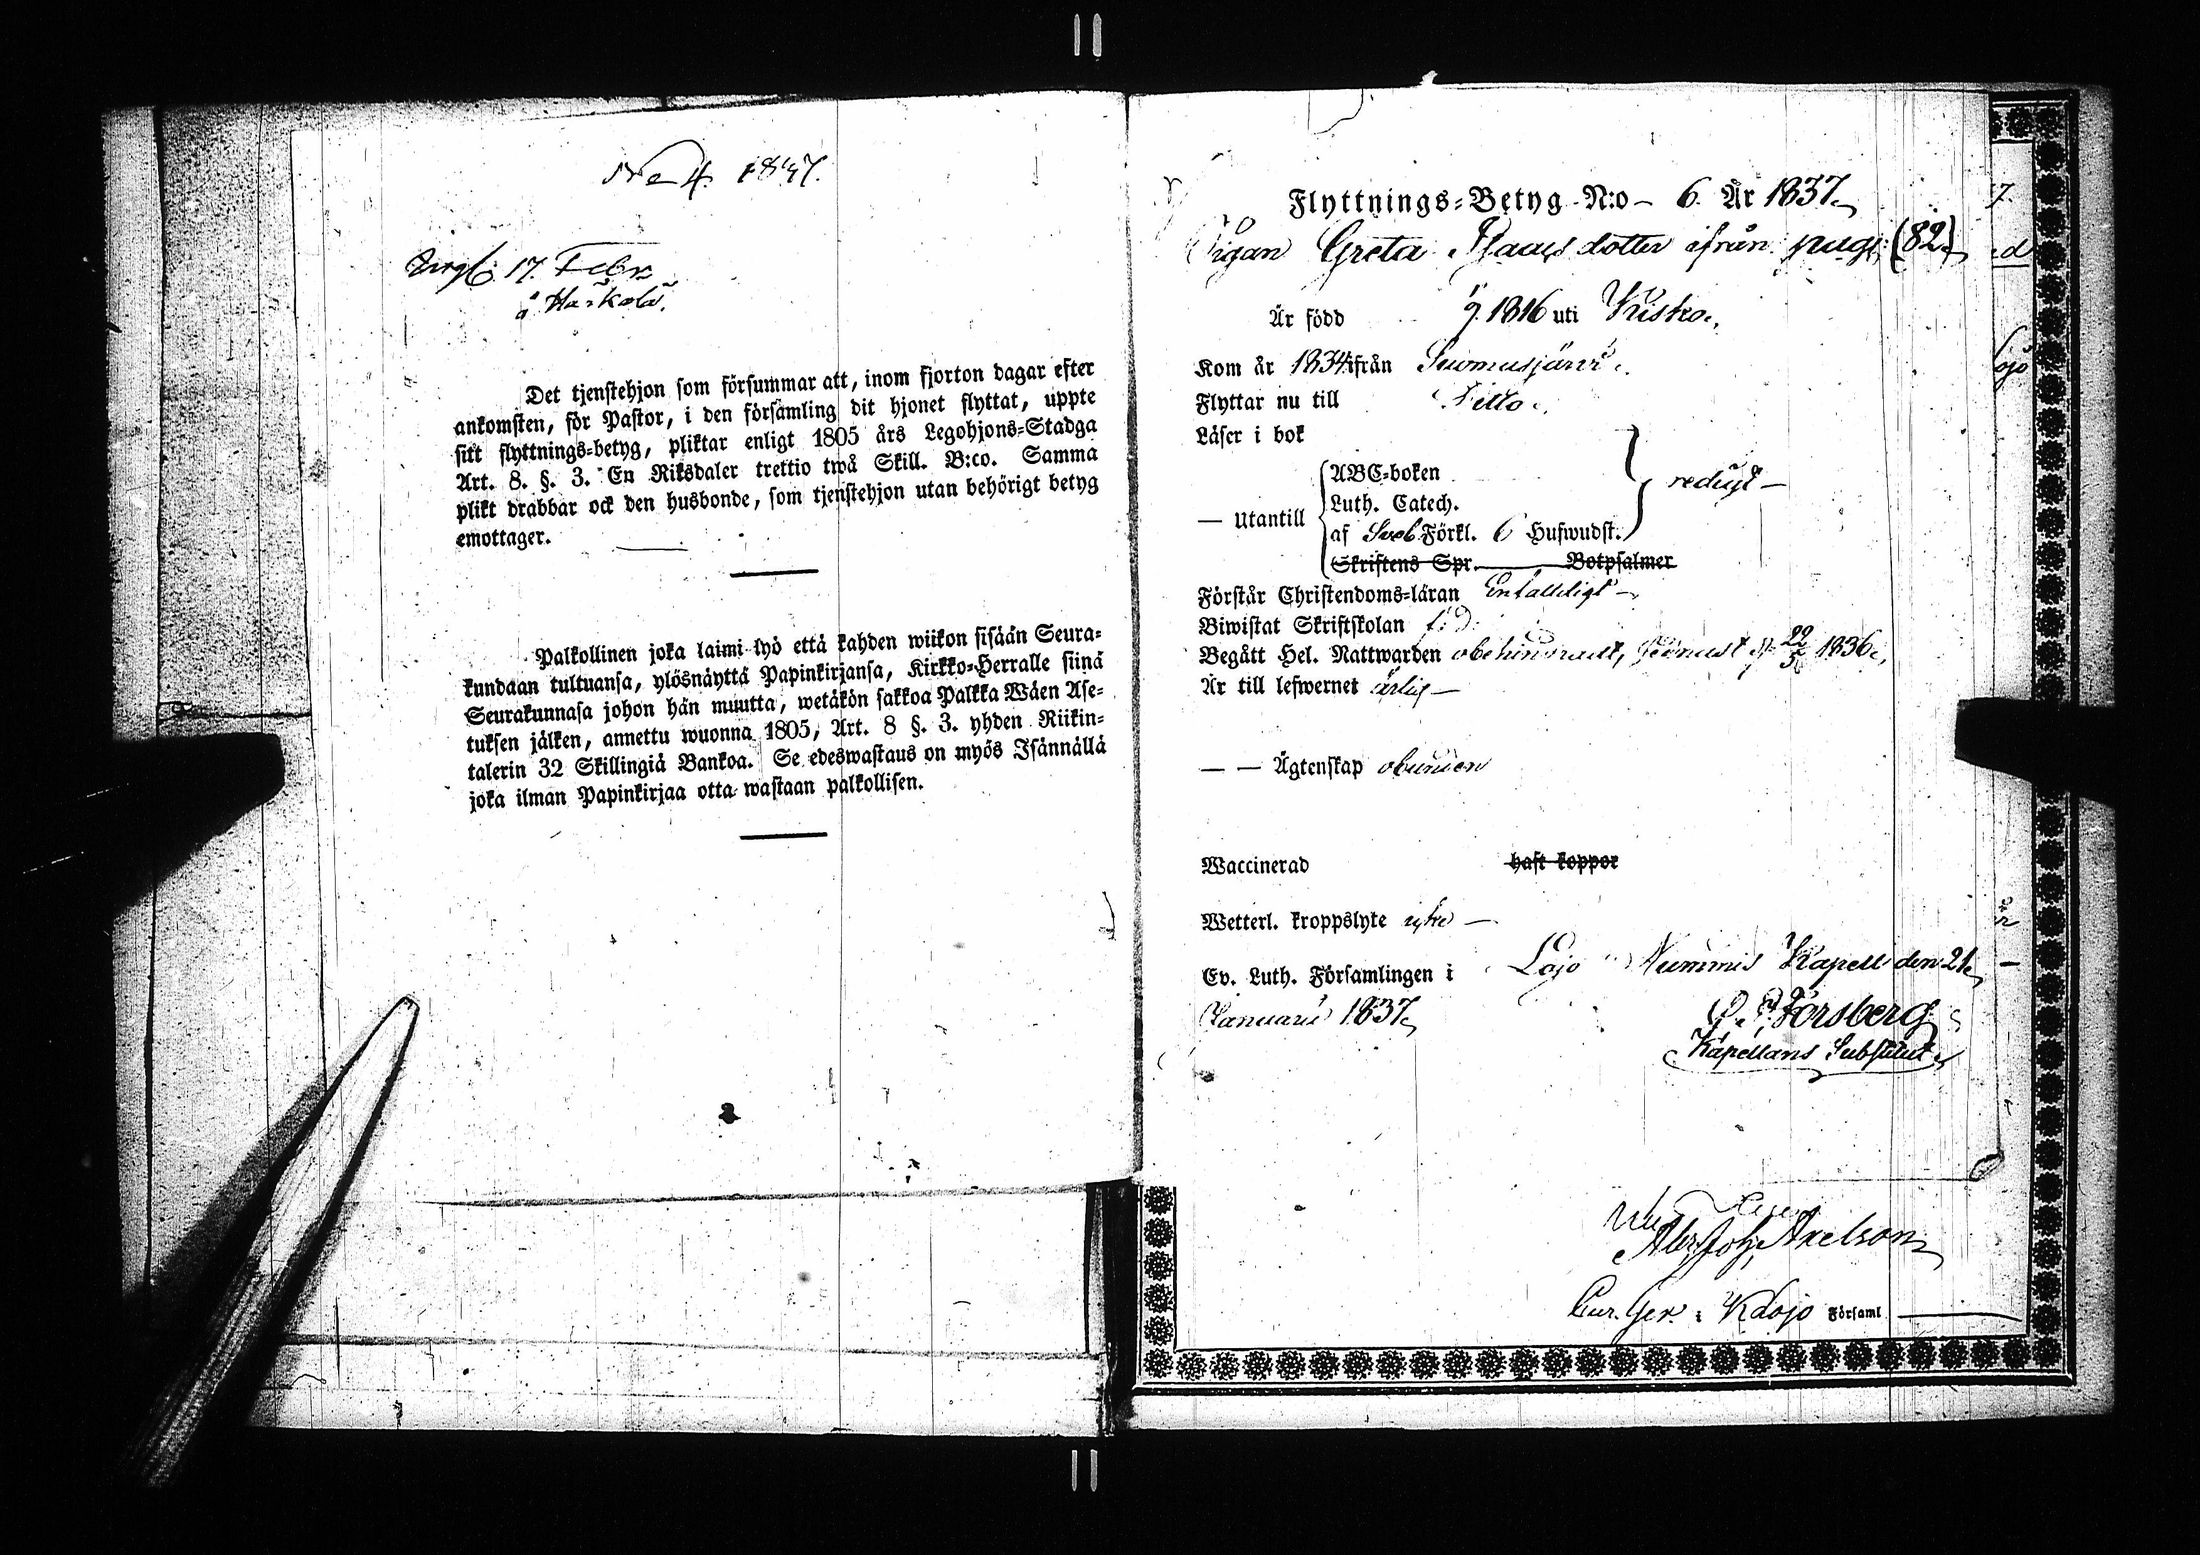 No 4. 1837.
17. Febr.
å Härkölä.
Det tjenstehjon som försummar att, inom fjorton dagar efter
ankomsten, för Pastor, i den församling dit hjonet flyttat, uppte
sitt flyttnings-betyg, pliktar enligt 1805 års Legohjons-Stadga
Art. 8. §. 3. En Riksdaler trettio twå Skill. B:co. Samma
plikt drabbar ock den husbonde, som tjenstehjon utan behörigt betyg
emottager.
Palkollinen joka laimi lyö että kahden wiikon sisään Seura-
kundaan tultuansa, ylösnäyttä Papinkirjansa, Kirkko-Herralle siinä
Seurakunnasa johon hän muutta, wetäkön sakkoa Palkka Wäen Ase-
tuksen jälken, annettu wuonna 1805, Art. 8 §. 3. yhden Riikin-
talerin 32 Skillingiä Bankoa. Se edeswastaus on myös Isännällä
joka ilman Papinkirjaa otta wastaan palkollisen.
Flyttnings-Betyg N:o 6. År 1837.
Pigan Greta Isaacsdotter ifrån pag: (82)
Är född 1816 uti Wiskο
Kom år 1834 ifrån Suomusjärvi
Flyttar nu till Ditto
Läser i bok
ABC-boken
Luth. Catech. redigt
— Utantill
af Sveb. Förkl. 6 Hufwudst.
Skriftens Spr. Botpsalmer
Förstår Christendoms-läran Enfalldigt
Biwistat Skriftskolan
Begått Hel. Nattwarden obehindradt, senast d. 22/5 1836.
Är till lefwernet ärlig
— — Ägtenskap obunden
Waccinerad haft koppor
Wetterl. kroppslyte icke
Ev. Luth. Församlingen i Lojo Nummis Kapell den 21
Januarii 1837.
Forsberg
Kapellans Substitut
Joh. Axelson
Cur. Ger. i Klojo Församl